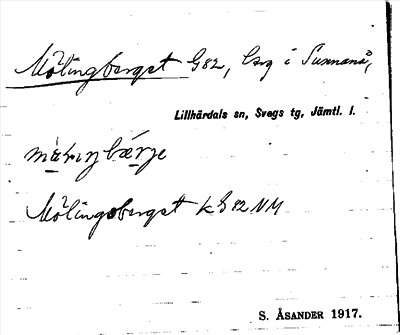 Mötingberget G82, berg i Sunnanå,
Lillhärdals sn, Svegs tg, Jämtl. l.
Mötingsberget k G82NM
S. ÅSANDER 1917.